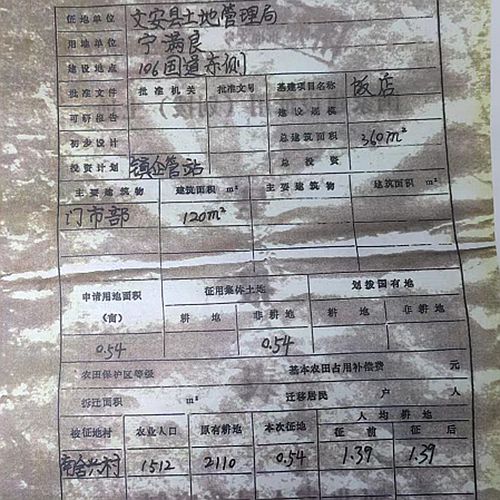 征地单位 文安县土地管理局
用地单位 宁满良
建设地点 106国道东侧
批准文件 批准机关 批准文号 基建项目名称 饭店
可研报告 建设规模
初步设计 总建筑面积 360m²
投资计划 镇企管站 总投资
主要建筑物 建筑面积 m² 主要建筑物 建筑面积 m²
门市部 120m²
申请用地面积(亩) 征用集体土地 划拨国有地
耕地 非耕地 耕地 非耕地
0.54 0.54
农田保护区等级 基本农田占用补偿费 元
拆迁面积 m² 迁移居民 户 人
被征地村 农业人口 原有耕地 本次征地 人均耕地
征前 征后
1512 2110 0.54 1.39 1.39